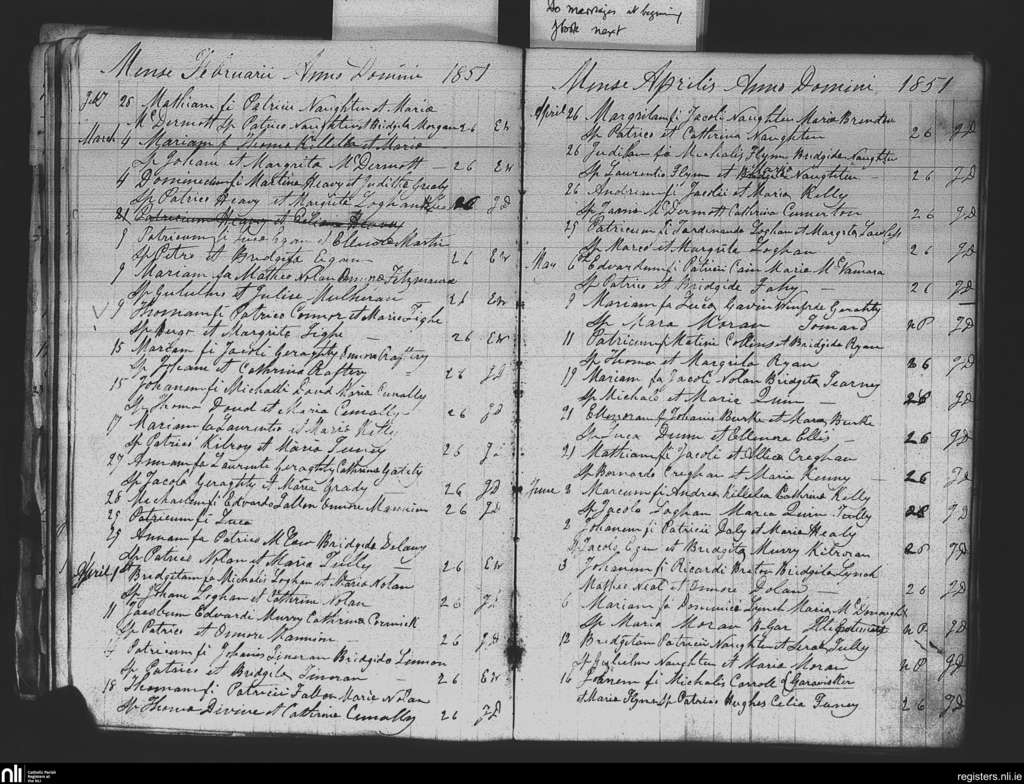 Do marriages at begining
of book next
Mense Februarii Anno Domini 1851
Feb 25 Mathiam fi Patricii Naughten et Maria
McDermott Sp Patrico Naughten et Bridgita Morgan 26 Ew
March 4 Mariam f Thoma Killelea et Maria
Sp Johani et Margrita McDermott 26 Ew
4 Dominicum fi Martino Heavy et Juditha Grealy
Sp Patrico Heavy et Margrita Loghan 26 JD
Patricium Heavy et
9 Patricum fi Luca Egan et Ellenora Martin
Sp Petro et Bridgita Egan 26 Ew
9 Mariam fa Matheo Nolan Onnora Fitzmaurice
Sp Gulielmo et Julise Mulheran 26 Ew
9 Thomam fi Patrico Connor et Maria Tighe
Sp Hugo et Margrita Tighe 26 Ew
15 Mariam fi Jacobi Geraghty Onnora Craftery
Sp Johani et Cathrina Craftery 26 JD
15 Johanem fi Michalli Doud Maria Cunally
Sp Thoma Doud et Maria Cunally 26 JD
17 Mariam fa Laurentio et Maria Kelly
Sp Patrico Kilroy et Maria Tuney 26 JD
27 Annam fa Laurente Geraghty Cathrina
Sp Jacobo Geraghty et Maria Grady 26 JD
28 Michaelem fi Edvardo Fallon Onnora Mannion 26 JD
25 Patricum fi Luca
29 Annam fa Patrico McCaw Bridgida Delany
Sp Patrico Nolan et Maria Tully 26 Ew
April 1st Bridgitam fa Michalis Loghan et Maria Nolan
Sp Johani Loghan et Cathrina Nolan 26 JD
11 Jacobum Edvardi Murry Cathrina Cormick
Sp Patrico et Onnora Mannion 26 JD
Patricum fi Johanis Tinoran Bridgida Linnon
Sp Patrico et Bridgita Tinoran 26 Ew
18 Thomam fi Patricii Fallon Maria Nolan
Sp Thoma Divine et Cathrina Cunally 26 JD
Mense Aprilis Anno Domini 1851
April 26 Margritam fa Jacobi Naughten Maria Brendon
Sp Patrico et Cathrina Naughten 26 JD
26 Juditham fa Michalis Flynn Bridgida Naughten
Sp Laurentio Flynn et Naughten 26 JD
26 Andream fi Jacobi et Maria Kelly
Sp Jamis McDermott Cathrina 26 JD
25 Patricum fi Ferdinando Loghan et Margrita Lawless
Sp Marco et Margrita Loghan 26 JD
May 6 Edvardum fi Patricii Cain Maria McNamara
Sp Patrico et Bridgida Fahy 26 JD
9 Mariam fa Luca Gavin Winifrde Geraghty
Sp Mara Moran Tomard NP JD
11 Patricum fi Matini Collins et Bridgida Ryan
Sp Thoma et Margrita Ryan 26 JD
19 Mariam fa Jacobi Nolan Bridgita Tearney
Sp Michale et Maria Quin 26 JD
21 Ellenoram f Johanis Burke et Mara Burke
Sp Luca Dunn et Ellenora Ellis 26 JD
21 Mathiam fi Jacobi et Creghan
Sp Bernardo Creghan et Maria Kenny 26 JD
June 3 Marcum fi Andrea Killilia Cathrina Kelly
Sp Jacobo Loghan Marca Quin Tully 26 JD
2 Johanem fi Patricii Daly et Maria Healy
Sp Jacobo Egan et Bridgita Murry Kitroran 26 JD
3 Johanem fi Ricardi Braton Bridgita Lynch
Matheo Neal et Onnora Dolan 26 JD
6 Mariam fa Dominici Lynch Maria McDonaugh
Sp Maria Moran NP JD
12 Bridgitam Patricii Naughten et Sarah Tully
Sp Gulielmo Naughten et Maria Moran NP JD
16 Joanem fi Michalis Carrole of Garavisker
et Maria Flynn Sp Patricio Hughes Celia Tuney 26 JD
nli Catholic Parish Registers at the NLI
registers.nli.ie